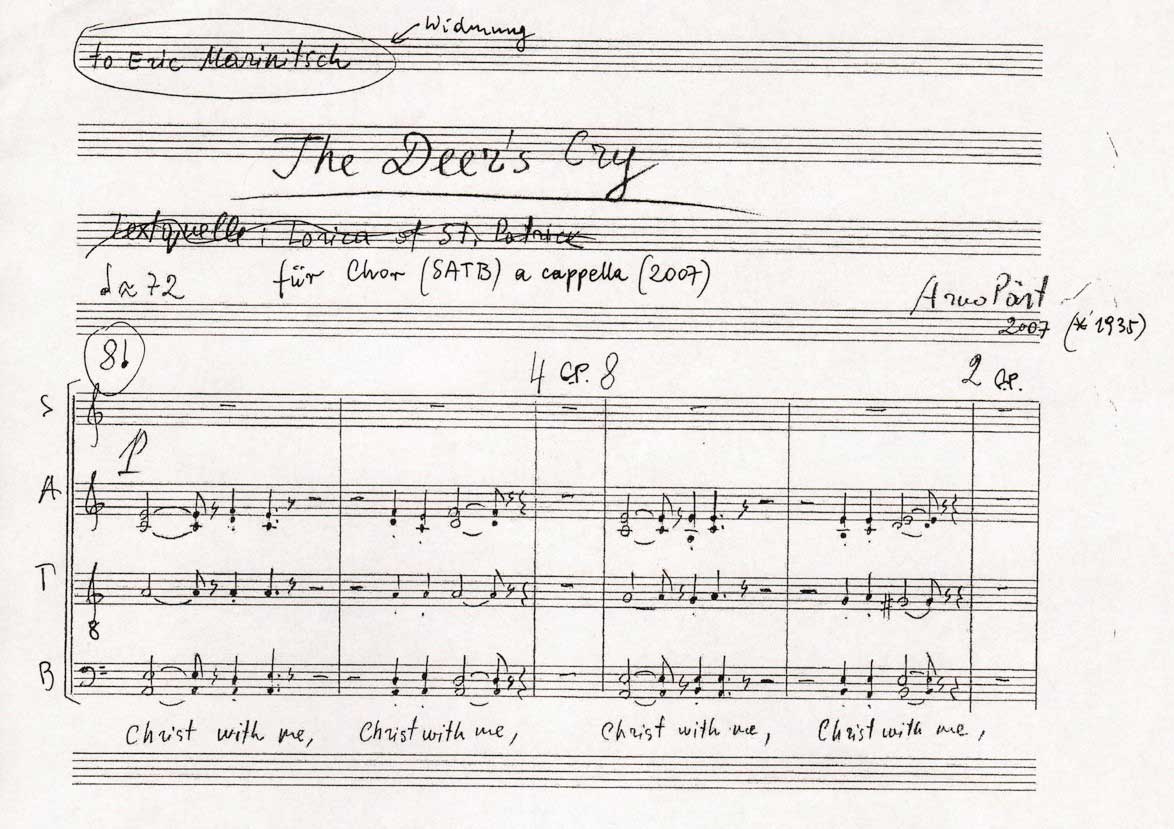 Widmung
to Eric Marinitsch
The Deer's Cry
Textquelle: Lorica of St. Patrick
für Chor (SATB) a cappella (2007)
♩≈72
Arvo Pärt
2007 (* 1935)
4 8 2
S
P
A
T
8
B
Christ with me, Christ with me, Christ with me, Christ with me,